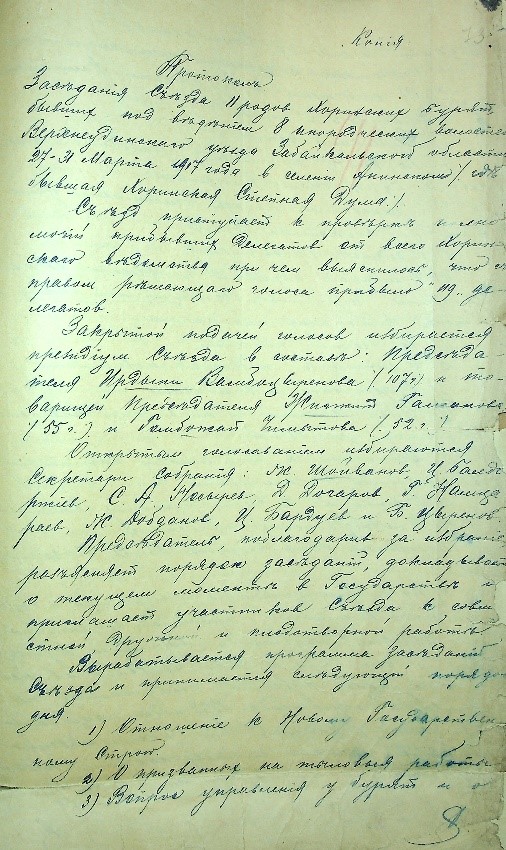 Копія
Протоколъ
Засѣданія Съѣзда 11 родовъ Хоринскихъ бурятъ
бывшихъ под вѣдѣніем 8 инородческихъ волостей
Верхнеудинскаго уѣзда Забайкальской области
27-31 Марта 1917 года в селеніи /гдѣ
бывшая Хоринская Степная Дума/.
Съѣзд приступает к провѣркѣ полно
мочій прибывших Делегатов от всего Хорин
скаго вѣдомства при чем выяснилось, что с
правом рѣшающаго голоса прибыло "119" де-
легатов.
Закрытой подачей голосов избирается
президіум Съѣзда в составѣ: Предсѣда
теля Ирдыни (107 г) и то-
варищей Предсѣдателя Галсанова
(55 г.) и (52 г.)
Открытым голосованіем избираются
Секретари Собранія: Ж. Шоиванов, Ц. Балда
ржіев, С. А. Д. Дочаров, Г. Намца
раев, Ж. Добданов, Ц. Бардуев и Б. Цыренов.
Предсѣдатель, поблагодарив за избраніе
разъясняет порядок засѣданій, докладывает
о текущем моментѣ в Государствѣ и
приглашает участников Съѣзда к совмѣ
стной дружной и плодотворной работѣ.
Вырабатывается программа Засѣданій
Съѣзда и принимается слѣдующій порядок
дня.
1) Отношеніе к Новому Государствен
ному Строю.
2) О призванных на тыловыя работы
3) Вопрос управленія у бурят и о